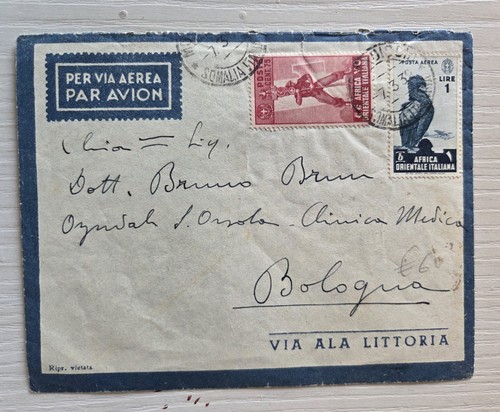 PER VIA AEREA
PAR AVION
1 3
SOMALIA
POSTE
CENT. 75
AFRICA
ORIENTALE ITALIANA
1 3 3
POSTA AEREA
LIRE
1
AFRICA
ORIENTALE ITALIANA
Dott. Bruno Brun
Ospedale S. Orsola - Clinica Medica
Bologna
€6
VIA ALA LITTORIA
Ripr. vietata